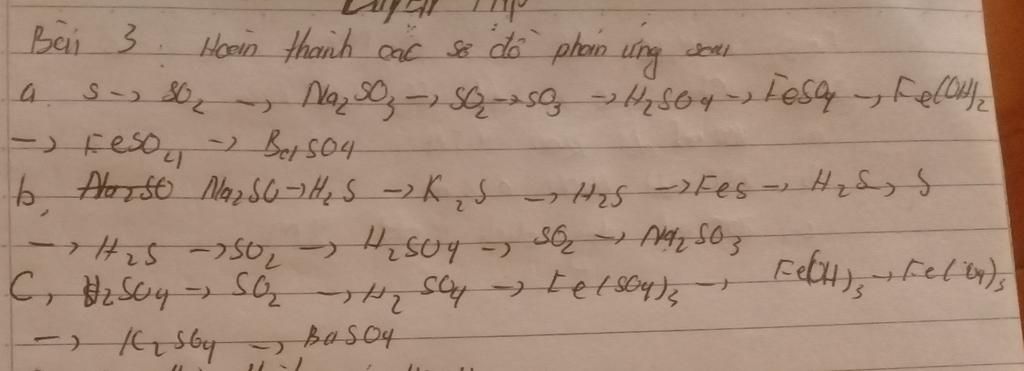 Luyện Tập
Bài 3. Hoàn thành các sơ đồ phản ứng sau
a. S → SO2 → Na2SO3 → SO2 → SO3 → H2SO4 → FeSO4 → Fe(OH)2
→ FeSO4 → BaSO4
b, Na2SO Na2SO → H2S → K2S → H2S → FeS → H2S → S
→ H2S → SO2 → H2SO4 → SO2 → Na2SO3
C, H2SO4 → SO2 → H2SO4 → Fe(SO4)3 → Fe(OH)3 → Fe(SO4)3
→ K2SO4 → BaSO4